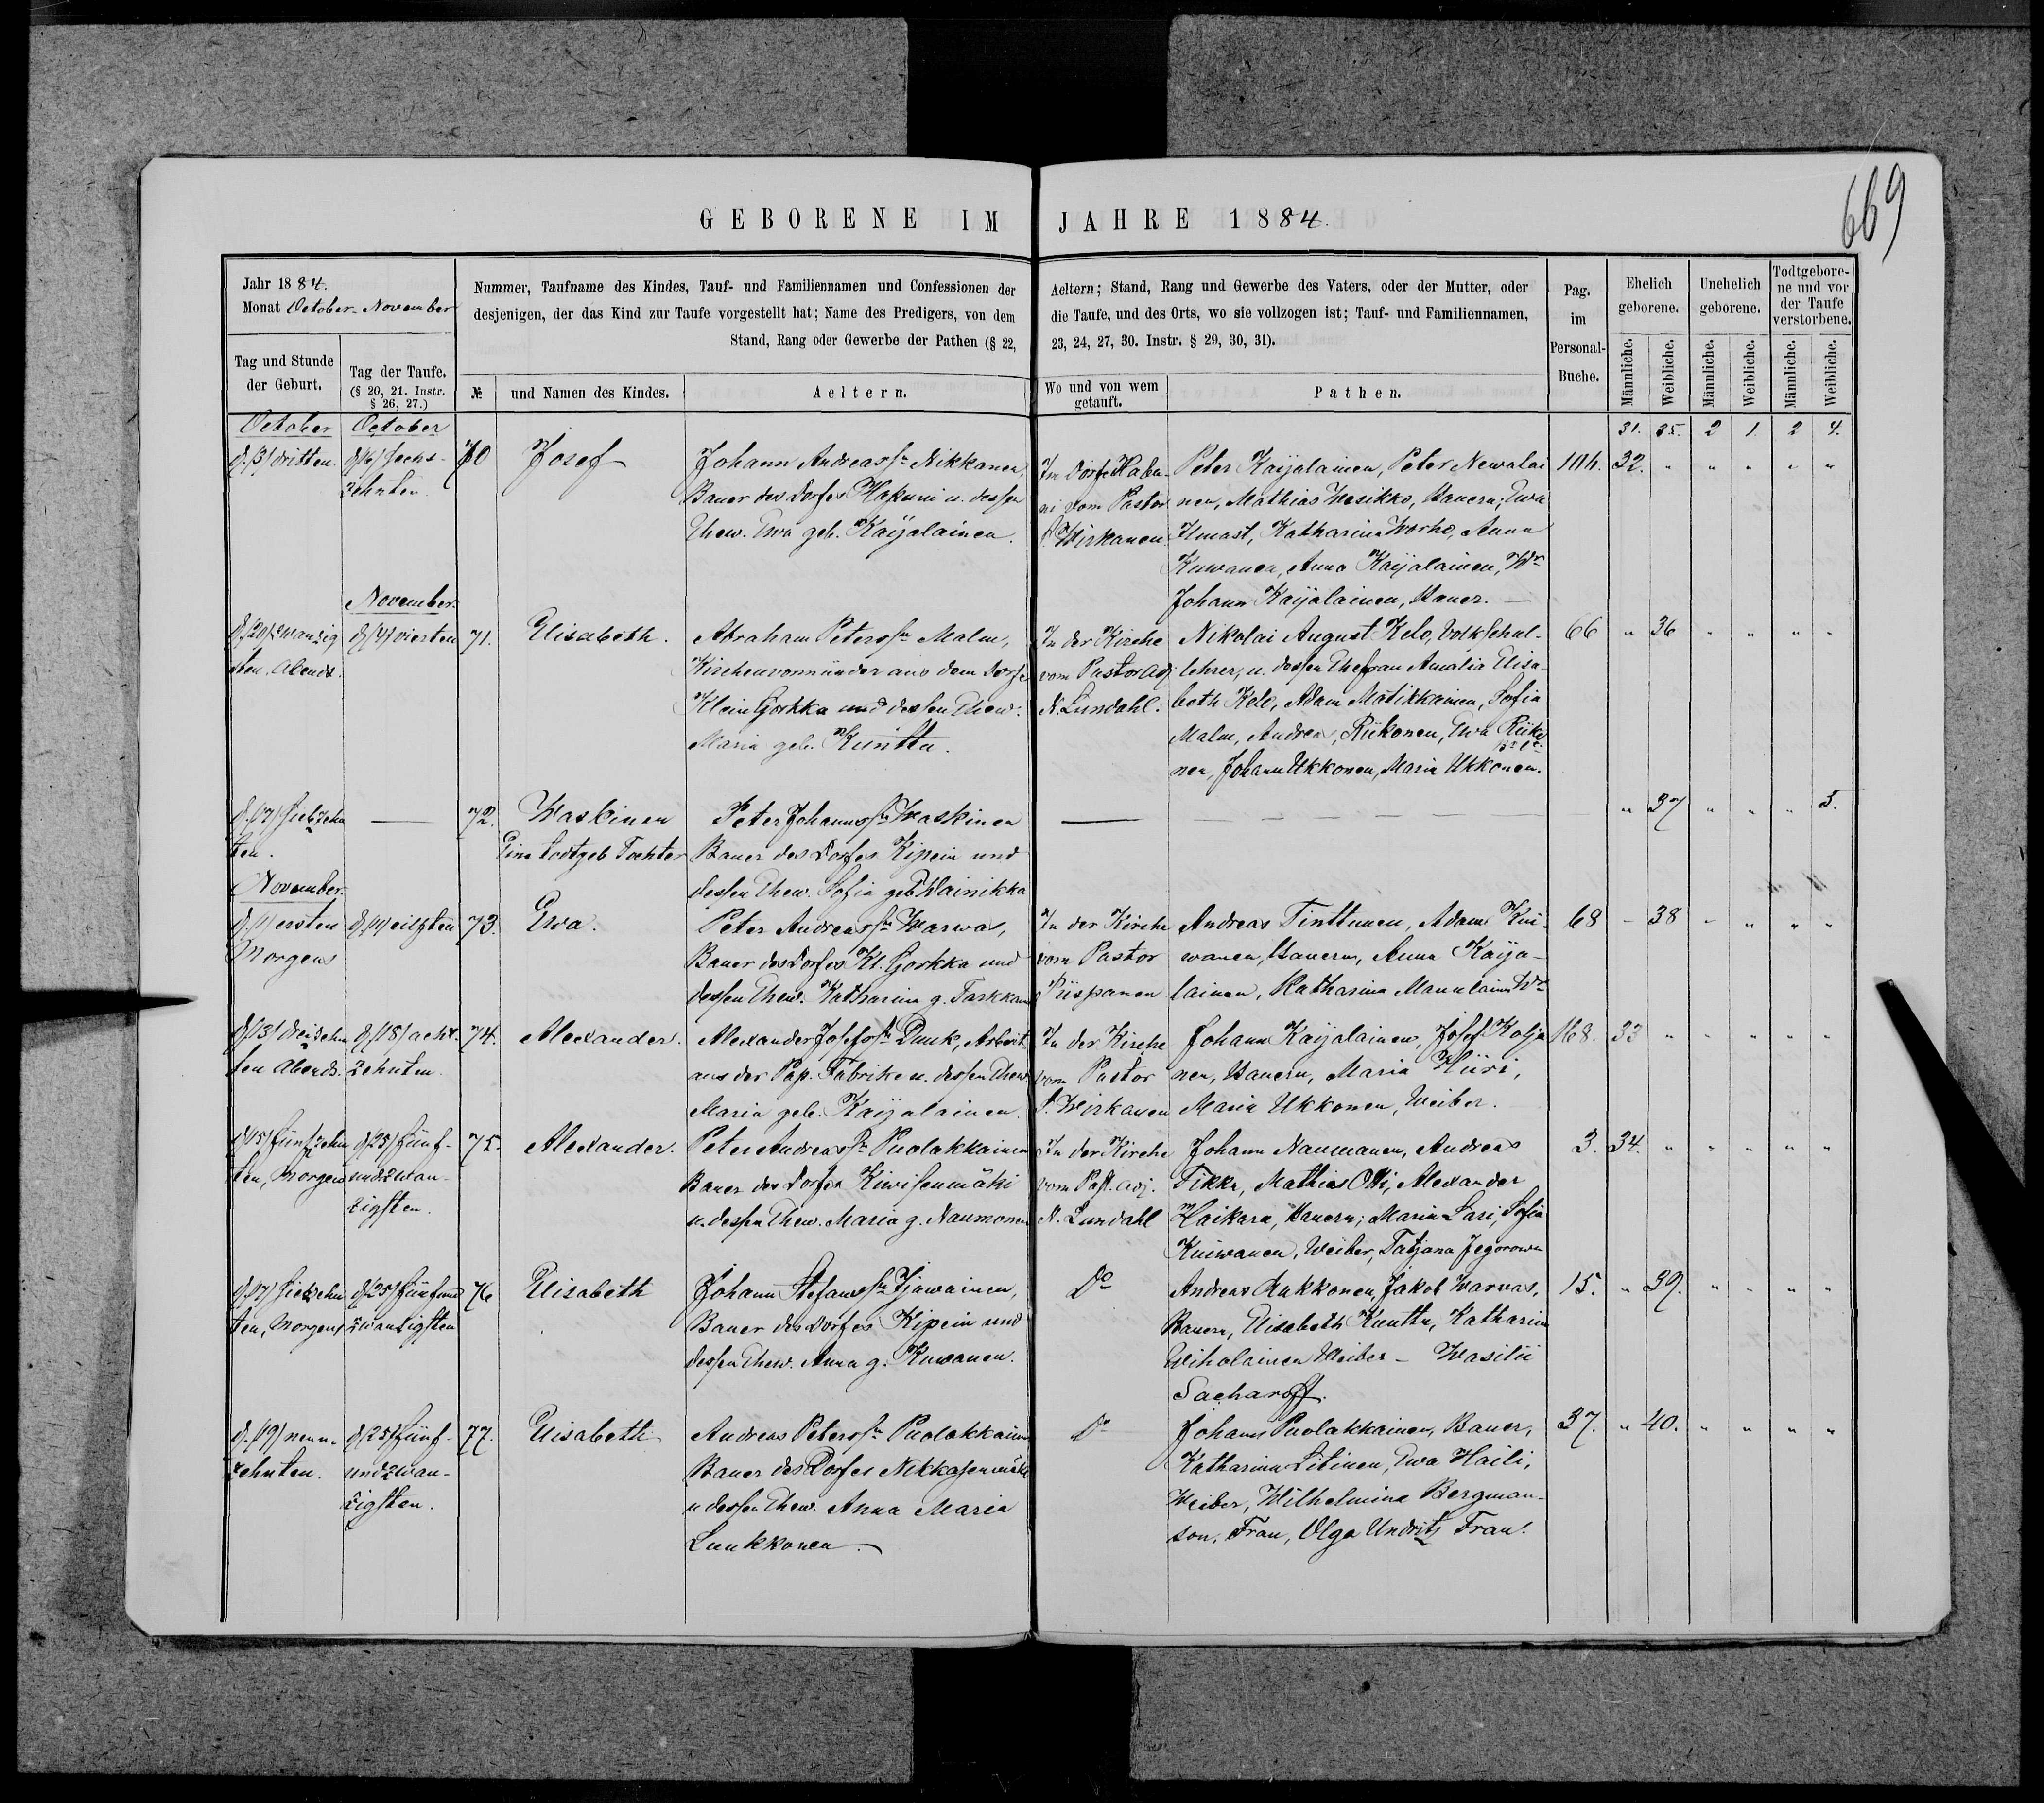 669
GEBORENE IM JAHRE 1884.
Jahr 1884.
Monat October-November
Nummer, Taufname des Kindes, Tauf- und Familiennamen und Confessionen der
desjenigen, der das Kind zur Taufe vorgestellt hat; Name des Predigers, von dem
Stand, Rang oder Gewerbe der Pathen (§ 22,
Aeltern; Stand, Rang und Gewerbe des Vaters, oder der Mutter, oder
die Taufe, und des Orts, wo sie vollzogen ist; Tauf- und Familiennamen,
23, 24, 27, 30. Instr. § 29, 30, 31).
Pag.
im
Personal-
Buche.
Ehelich
geborene.
Unehelich
geborene.
Todtgebore-
ne und vor
der Taufe
verstorbene.
Tag und Stunde
der Geburt.
Tag der Taufe.
(§ 20, 21. Instr.
§ 26, 27.)
№
und Namen des Kindes.
Aeltern.
Wo und von wem
getauft.
Pathen.
Männliche.
Weibliche.
Männliche.
Weibliche.
Männliche.
Weibliche.
31. 35. 2 1. 2 4.
October
d. (3) dritten.
October
d. (16) sechs-
zehnten.
70
Josef
Johann Andreas Sn Nikkanen
Bauer des Dorfes Hakuni u. dessen
Ehew. Ewa geb. Kaijalainen.
Im Dorfe Haku-
ni vom Pastor
P. Wirkanen.
Peter Kaijalainen, Peter Newalai
nen, Mathias Wesikko, Bauern; Ewa
Ilmast, Katharina Worho, Anna
Kuwanen, Anna Kaijalainen, Wr
Johann Kaijalainen, Bauer. —
104. 32. " " " " "
d. (20) zwanzig
sten. Abends.
November.
d. (4) vierten
71.
Elisabeth.
Abraham Peters Sn Malm,
Kirchenvormünder aus dem Dorfe
Klein Gorkka und dessen Ehew.
Maria geb. Kunttu.
In der Kirche
vom Pastor Adj
N. Lundahl.
Nikolai August Kelo, Volkschul-
lehrer, u. dessen Ehefrau Amalia Elisa-
beth Kelo, Adam Matikkainen, Sofia
Malm, Andreas Riikonen, Ewa Riiko
nen, Johann Ukkonen, Maria Ukkonen.
66 " 36 " " " "
d. (17) siebzehn
ten.
—
72.
Waskinen
Eine todtgeb Tochter
Peter Johanns Sn Waskinen
Bauer des Dorfes Kipein und
dessen Ehew. Sofia geb Wainikka
—
" 37 " " " 5.
November.
d. (1) ersten
Morgens
d. (11) eilften
73.
Ewa.
Peter Andreas Sn Warwas,
Bauer des Dorfes Kl. Gorkka und
dessen Ehew. Katharina g. Tarkkan
In der Kirche
vom Pastor
Piispanen
Andreas Tinttunen, Adam Kui-
wanen, Bauern, Anna Kaija-
lainen, Katharina Maunulainn Wr
68 - 38 " " " "
d. (13) dreizehn
ten Abends.
d. (18) acht-
zehnten.
74.
Alexander.
Alexander Josefs Sn Duuk, Arbeit
aus der Pap. Fabrike u. dessen Ehew
Maria geb. Kaijalainen.
In der Kirche
vom Pastor
P. Wirkanen
Johann Kaijalainen, Josef Kolja
nen, Bauern, Maria Hiiri,
Maria Ukkonen, Weiber.
168. 33 " " " " "
d. (15) fünfzehn
ten, Morgens
d. (25) fünf-
undzwan-
zigsten.
75.
Alexander.
Peter Andreas Sn Puolakkainen
Bauer des Dorfes Kiwisenmäki
u. dessen Ehew. Maria g. Naumonen
In der Kirche
vom Past. Adj.
N. Lundahl
Johann Naumanen, Andreas
Tikka, Mathias Olli, Alexander
Haikara, Bauern; Maria Sari, Sofia
Kuiwanen, Weiber, Tatjana Jegorowa
3. 34. " " " " "
d. (17) siebzehn
ten, Morgens
d. (25) fünfund
zwanzigsten
76
Elisabeth
Johann Stefans Sn Ijäwainen,
Bauer des Dorfes Kipein und
dessen Ehew. Anna g. Kuwanen.
Do
Andreas Kukkonen, Jakob Warwas,
Bauern, Elisabeth Kunttu, Katharina
Wiholainen Weiber - Wasilii
Sacharoff.
15. " 39. " " " "
d. (19) neun-
zehnten.
d. (25) fünf-
undzwan-
zigsten.
77.
Elisabeth
Andreas Peters Sn Puolakkainn
Bauer des Dorfes Nikkasenmäki
u dessen Ehew. Anna Maria
Luukkonen.
Do
Johann Puolakkainen, Bauer,
Katharina Litinen, Ewa Haili,
Weiber, Wilhelmina Bergman-
son, Frau, Olga Undritz Frau.
37. " 40. " " " "